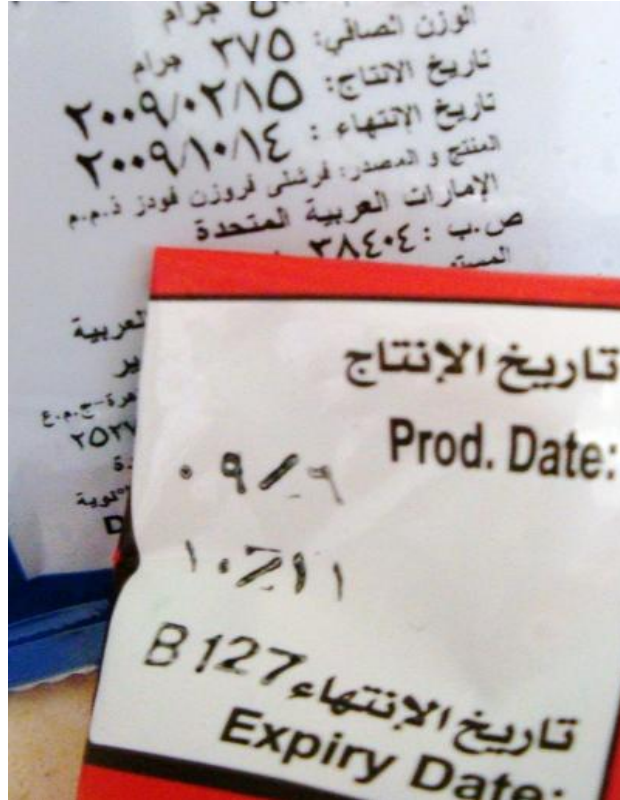 جرام
الوزن الصافي: ٣٧٥ جرام
تاريخ الانتاج: ٢٠٠٩/٠٢/١٥
تاريخ الإنتهاء : ٢٠٠٩/١٠/١٤
المنتج و المصدر: فرشلى فروزن فودز ذ.م.م
الإمارات العربية المتحدة
ص.ب : ٣٨٤٠٤
العربية
ج.م.ع
تاريخ الإنتاج
Prod. Date:
٠٩/٩
١٠/١١
B 127
تاريخ الإنتهاء
Expiry Date: